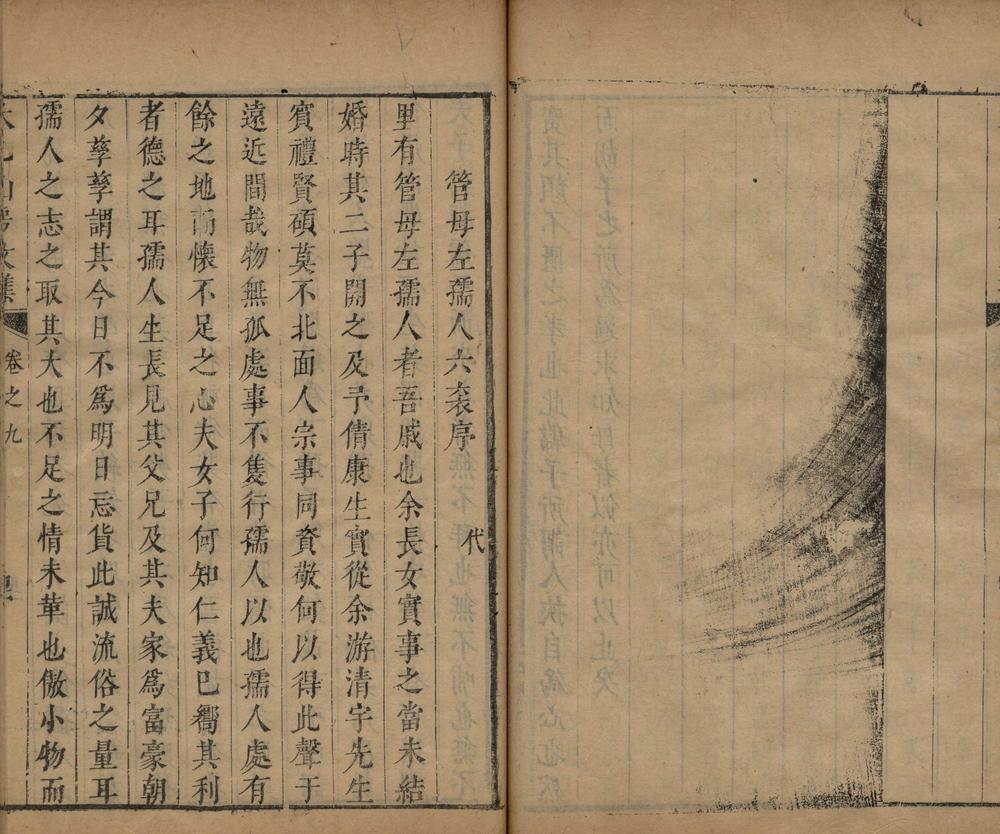 管母左孺人六袠序
代
里有管母左孺人者吾戚也余長女實事之當未結
婚時其二子開之及予倩康生實從余游清宇先生
賓禮賢碩莫不北面人宗事同資敬何以得此聲于
遠近間哉物無孤處事不隻行孺人以也孺人處有
餘之地而懷不足之心夫女子何知仁義已嚮其利
者德之耳孺人生長見其父兄及其夫家爲富豪朝
夕孳孳謂其今日不爲明日忘貨此誠流俗之量耳
孺人之志之取其大也不足之情未華也儌小物而
卷之九